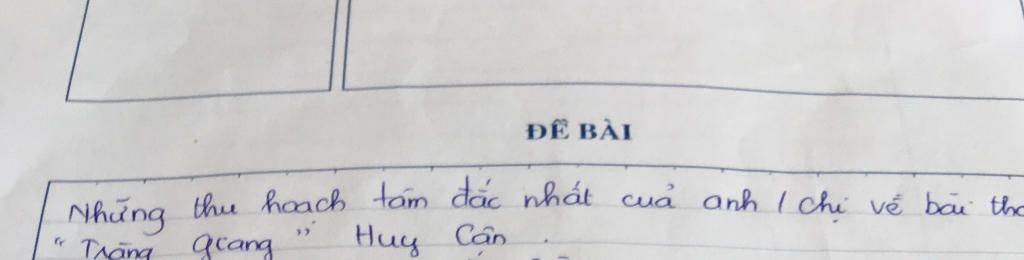 ĐỀ BÀI
Những thu hoạch tâm đắc nhất của anh / chị về bài thơ
"Tràng giang" Huy Cận.